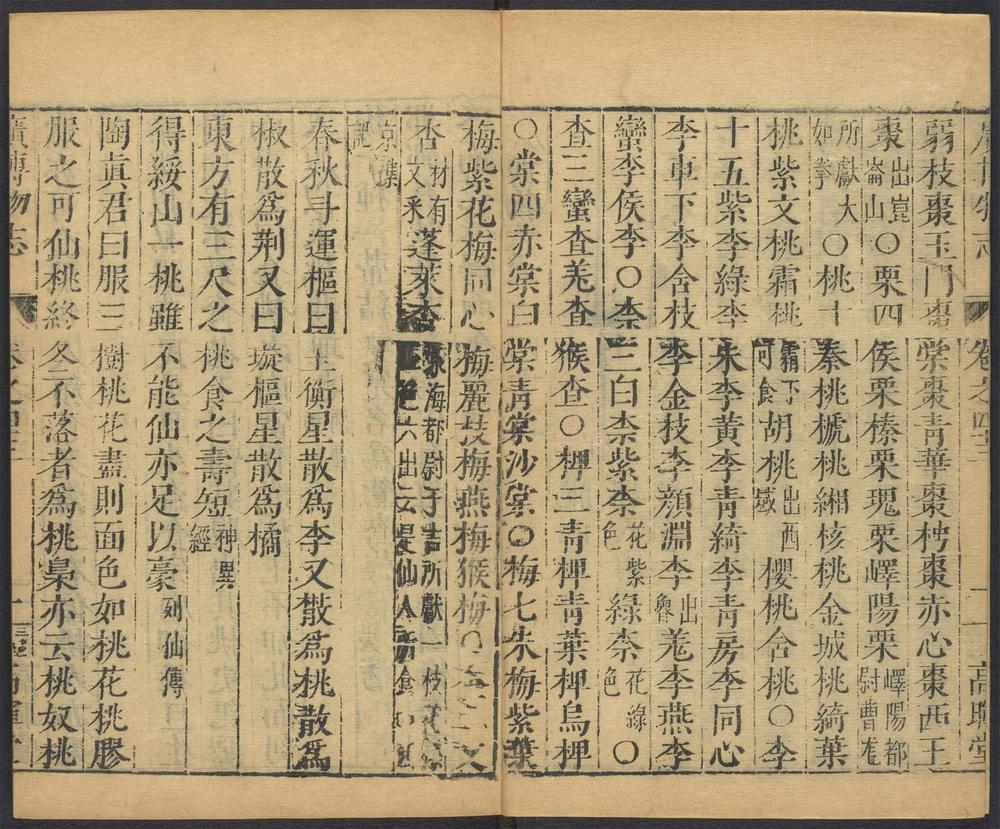 廣博物志 卷之四十三 高暉堂
弱枝棗玉門棗棠棗青華棗梬棗赤心棗西王
棗出崑崙山〇栗四侯栗榛栗瑰栗嶧陽栗嶧陽都尉曹龍
所獻大如拳〇桃十秦桃榹桃緗核桃金城桃綺葉
桃紫文桃霜桃霜下可食胡桃出西域櫻桃含桃〇李
十五紫李綠李朱李黃李青綺李青房李同心
李車下李含枝李金枝李顏淵李出魯羌李燕李
蠻李侯李〇柰三白柰紫柰花紫色綠柰花綠色〇
查三蠻查羌查猴查〇椑三青椑青葉椑烏椑
〇棠四赤棠白棠青棠沙棠〇梅七朱梅紫葉
梅紫花梅同心梅麗枝梅燕梅猴梅〇杏二文
杏材有文采蓬萊杏東海都尉于吉所獻一枝花雜五色六出云是仙人所食
京雜記
春秋斗運樞曰玉衡星散爲李又散爲桃散爲
椒散爲荆又曰璇樞星散爲橘
東方有三尺之桃食之壽短神異經
得綏山一桃雖不能仙亦足以豪列仙傳
陶真君曰服三樹桃花盡則面色如桃花桃膠
服之可仙桃終冬不落者爲桃梟亦云桃奴桃
廣博物志 卷之四十三 高暉堂